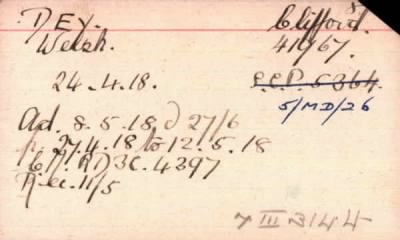 DEY. Clifford.
Welsh. 41767.
24.4.18. P.C.P. 5364.
5/MD/26
Ad. 8.5.18 D 27/6
27.4.18 to 12.5.18
RD 3C. 4397
Rec. 11/5
7 III 3144